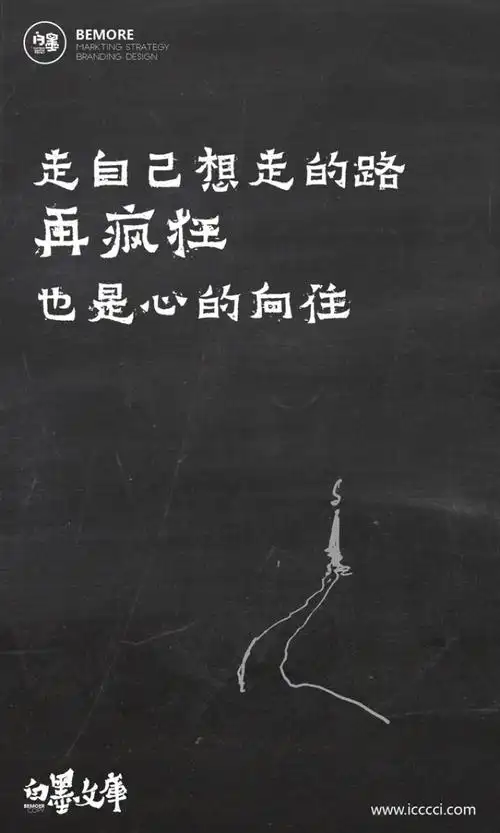 白墨
BEMORE
MARKTING STRATEGY
BRANDING DESIGN
走自己想走的路
再疯狂
也是心的向往
白墨文庫
BEMORE
COPY
www.icccci.com